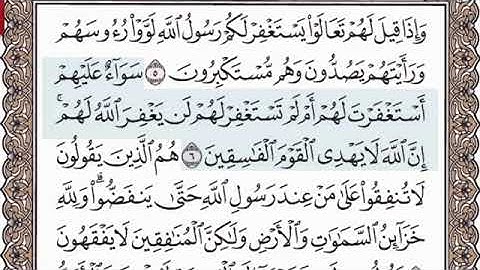 وَإِذَا قِيلَ لَهُمْ تَعَالَوْا۟ يَسْتَغْفِرْ لَكُمْ رَسُولُ ٱللَّهِ لَوَّوْا۟ رُءُوسَهُمْ
وَرَأَيْتَهُمْ يَصُدُّونَ وَهُم مُّسْتَكْبِرُونَ ٥ سَوَآءٌ عَلَيْهِمْ
أَسْتَغْفَرْتَ لَهُمْ أَمْ لَمْ تَسْتَغْفِرْ لَهُمْ لَن يَغْفِرَ ٱللَّهُ لَهُمْ ۚ
إِنَّ ٱللَّهَ لَا يَهْدِى ٱلْقَوْمَ ٱلْفَٰسِقِينَ ٦ هُمُ ٱلَّذِينَ يَقُولُونَ
لَا تُنفِقُوا۟ عَلَىٰ مَنْ عِندَ رَسُولِ ٱللَّهِ حَتَّىٰ يَنفَضُّوا۟ ۗ وَلِلَّهِ
خَزَآئِنُ ٱلسَّمَٰوَٰتِ وَٱلْأَرْضِ وَلَٰكِنَّ ٱلْمُنَٰفِقِينَ لَا يَفْقَهُونَ